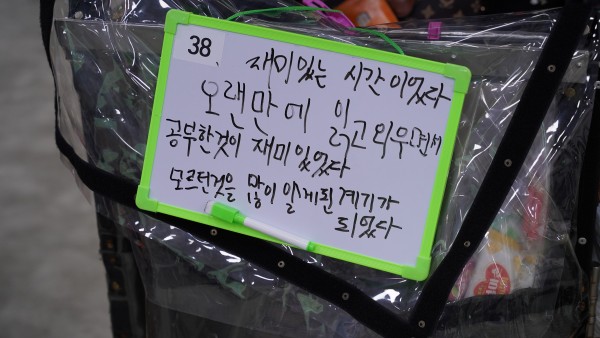 38
재미있는 시간이었다
오랜만에 읽고 외우면서
공부한것이 재미있었다
모르던것을 많이 알게된 계기가
되었다